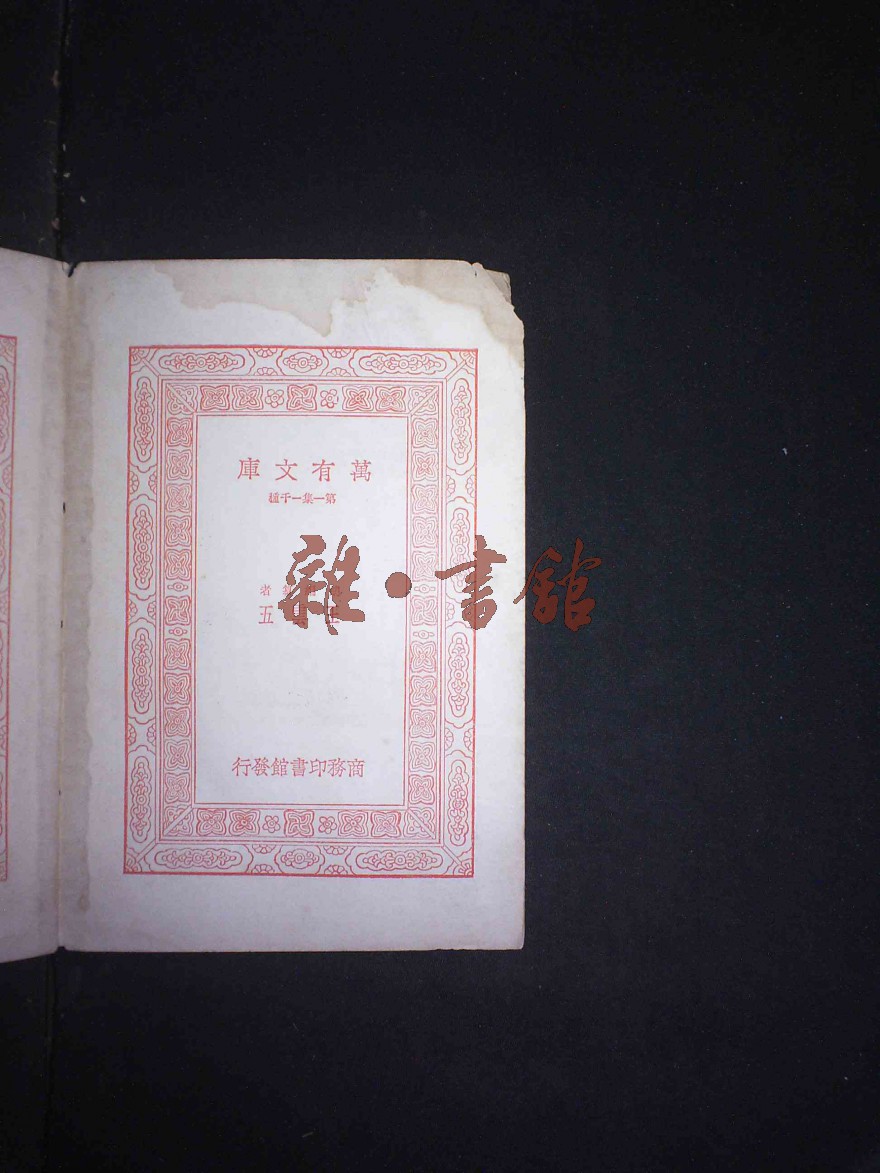 萬有文庫
第一集一千種
者
王雲五
商務印書館發行
雜·書館